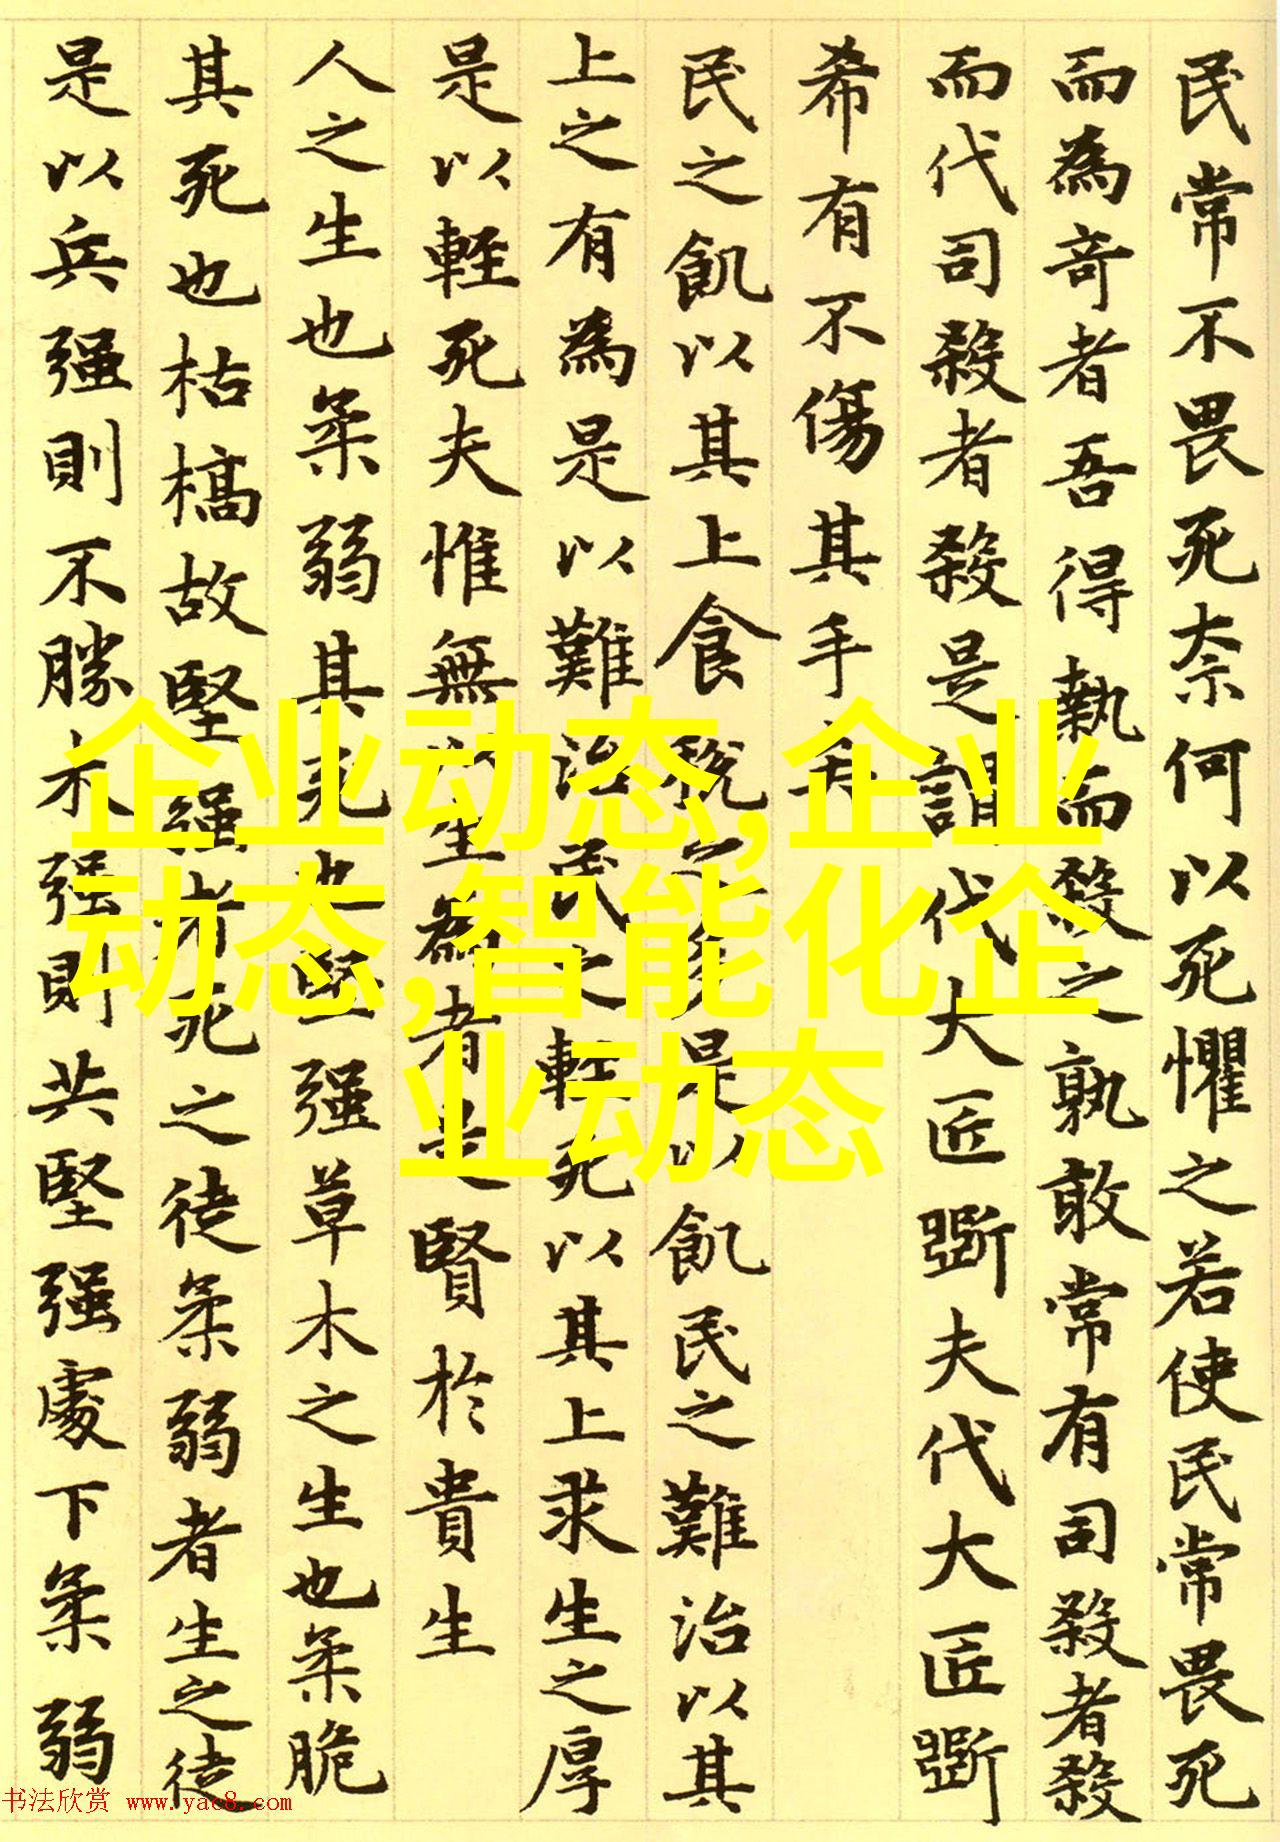 民常不畏死奈何以死懼之若使民常畏死
而為奇者吾得執而殺之孰敢常有司殺者殺
而代司殺者殺是謂代大匠斲夫代大匠斲
希有不傷其手矣
民之飢以其上食稅之多是以飢民之難治以其
上之有為是以難治民之輕死以其上求生之厚
是以輕死夫惟無以生為者是賢於貴生
人之生也柔弱其死也堅强草木之生也柔脆
其死也枯槁故堅强者死之徒柔弱者生之徒
是以兵强則不勝木强則共堅强處下柔弱
企业动态,企业
动态,智能化企
业动态
书法欣赏 www.yac8.com